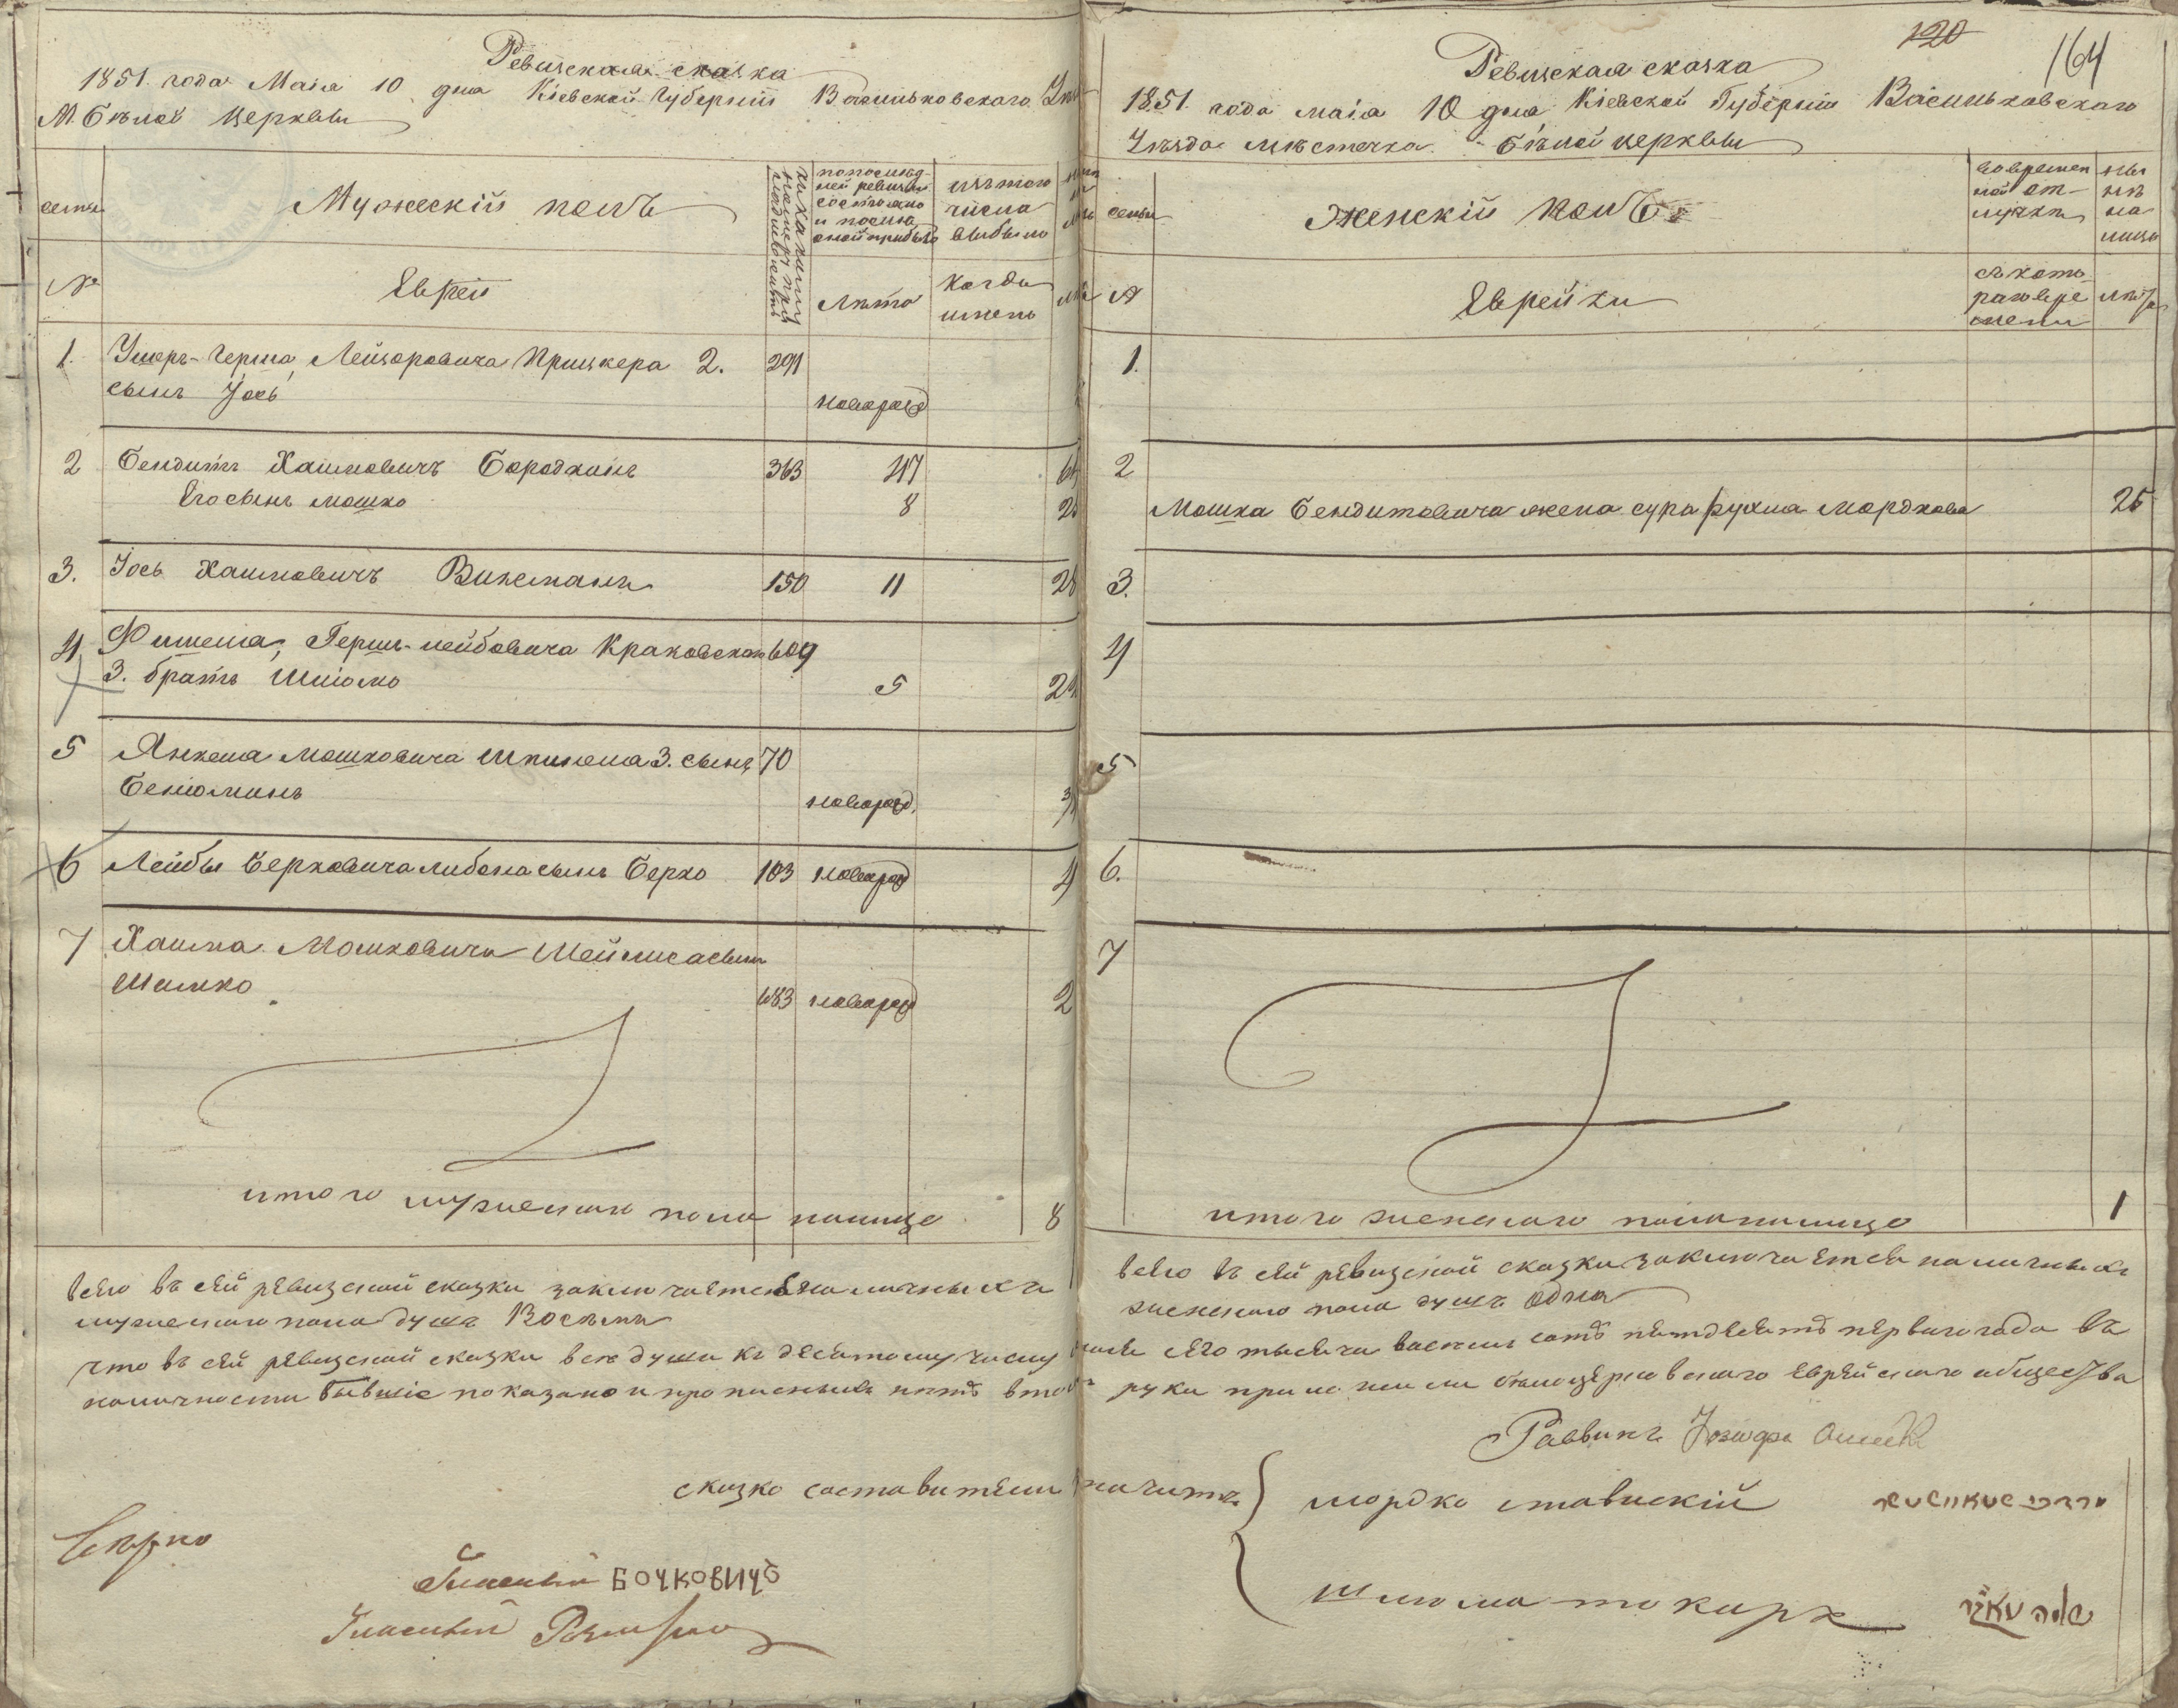 Ревизская сказка
1851. года Маія 10 дня Кіевской Губерніи Васильковскаго
М. Белой Церкви
семьи
Мужескій полъ
по последней ревизіи состояло и после оной прибыло
изъ того числа выбыло
№
Евреи
Лета
когда именно
1. Умеръ-Герша, Лейзоровича Прицкера 2. 291
сынъ Іось новорожд
2 Бендитъ Хаимовичъ Бородкинъ 363 47
Его сынъ Мошко 8
3. Іось Хаимовичъ Винеманъ 150 11 28
4 Фишеля, Герш-лейбовича Краковскаго 609
3. братъ Шліомо 5
5 Янкеля Мошковича Шпинеля 3. сынъ 70
Бенюминъ новорожд.
6 Лейбы Берковича либона сынъ Берко 103 новорожд 4
7 Хаима Мошковича Шейниса сынъ
Шимко 683 новорожд 2
итого мужескаго пола налицо 8
всего въ сей ревизской сказки заключается наличныхъ
мужескаго пола душъ Восемь
что въ сей ревизской сказки все души къ десятому числу
наличности бывшіе показано и прописныхъ нетъ в том
сказко составители
Верно
Гласный БОЧКОВИЧЪ
Гласный
120
164
Ревизская сказка
1851. года маія 10 дня Кіевской Губерніи Васильковскаго
Уезда местечка Белой церкви
семьи
Женскій полъ
во временной отлучке
ныне на лицо
№
Еврейки
съ котораго времени
лета
1.
2
Мошка Бендитовича жена сура рухля Мордкова 25
3.
4
5
6.
7
итого женскаго пола налицо 1
всего въ сей ревизской сказки заключается наличныхъ
женскаго пола душъ Одна
сего тысяча восемь сотъ петдесятъ перваго года въ
руки приложили белоцерковскаго Еврейскаго общества
Раввинъ
мордко ставискій
шлома токаръ
שלמה טאקיר